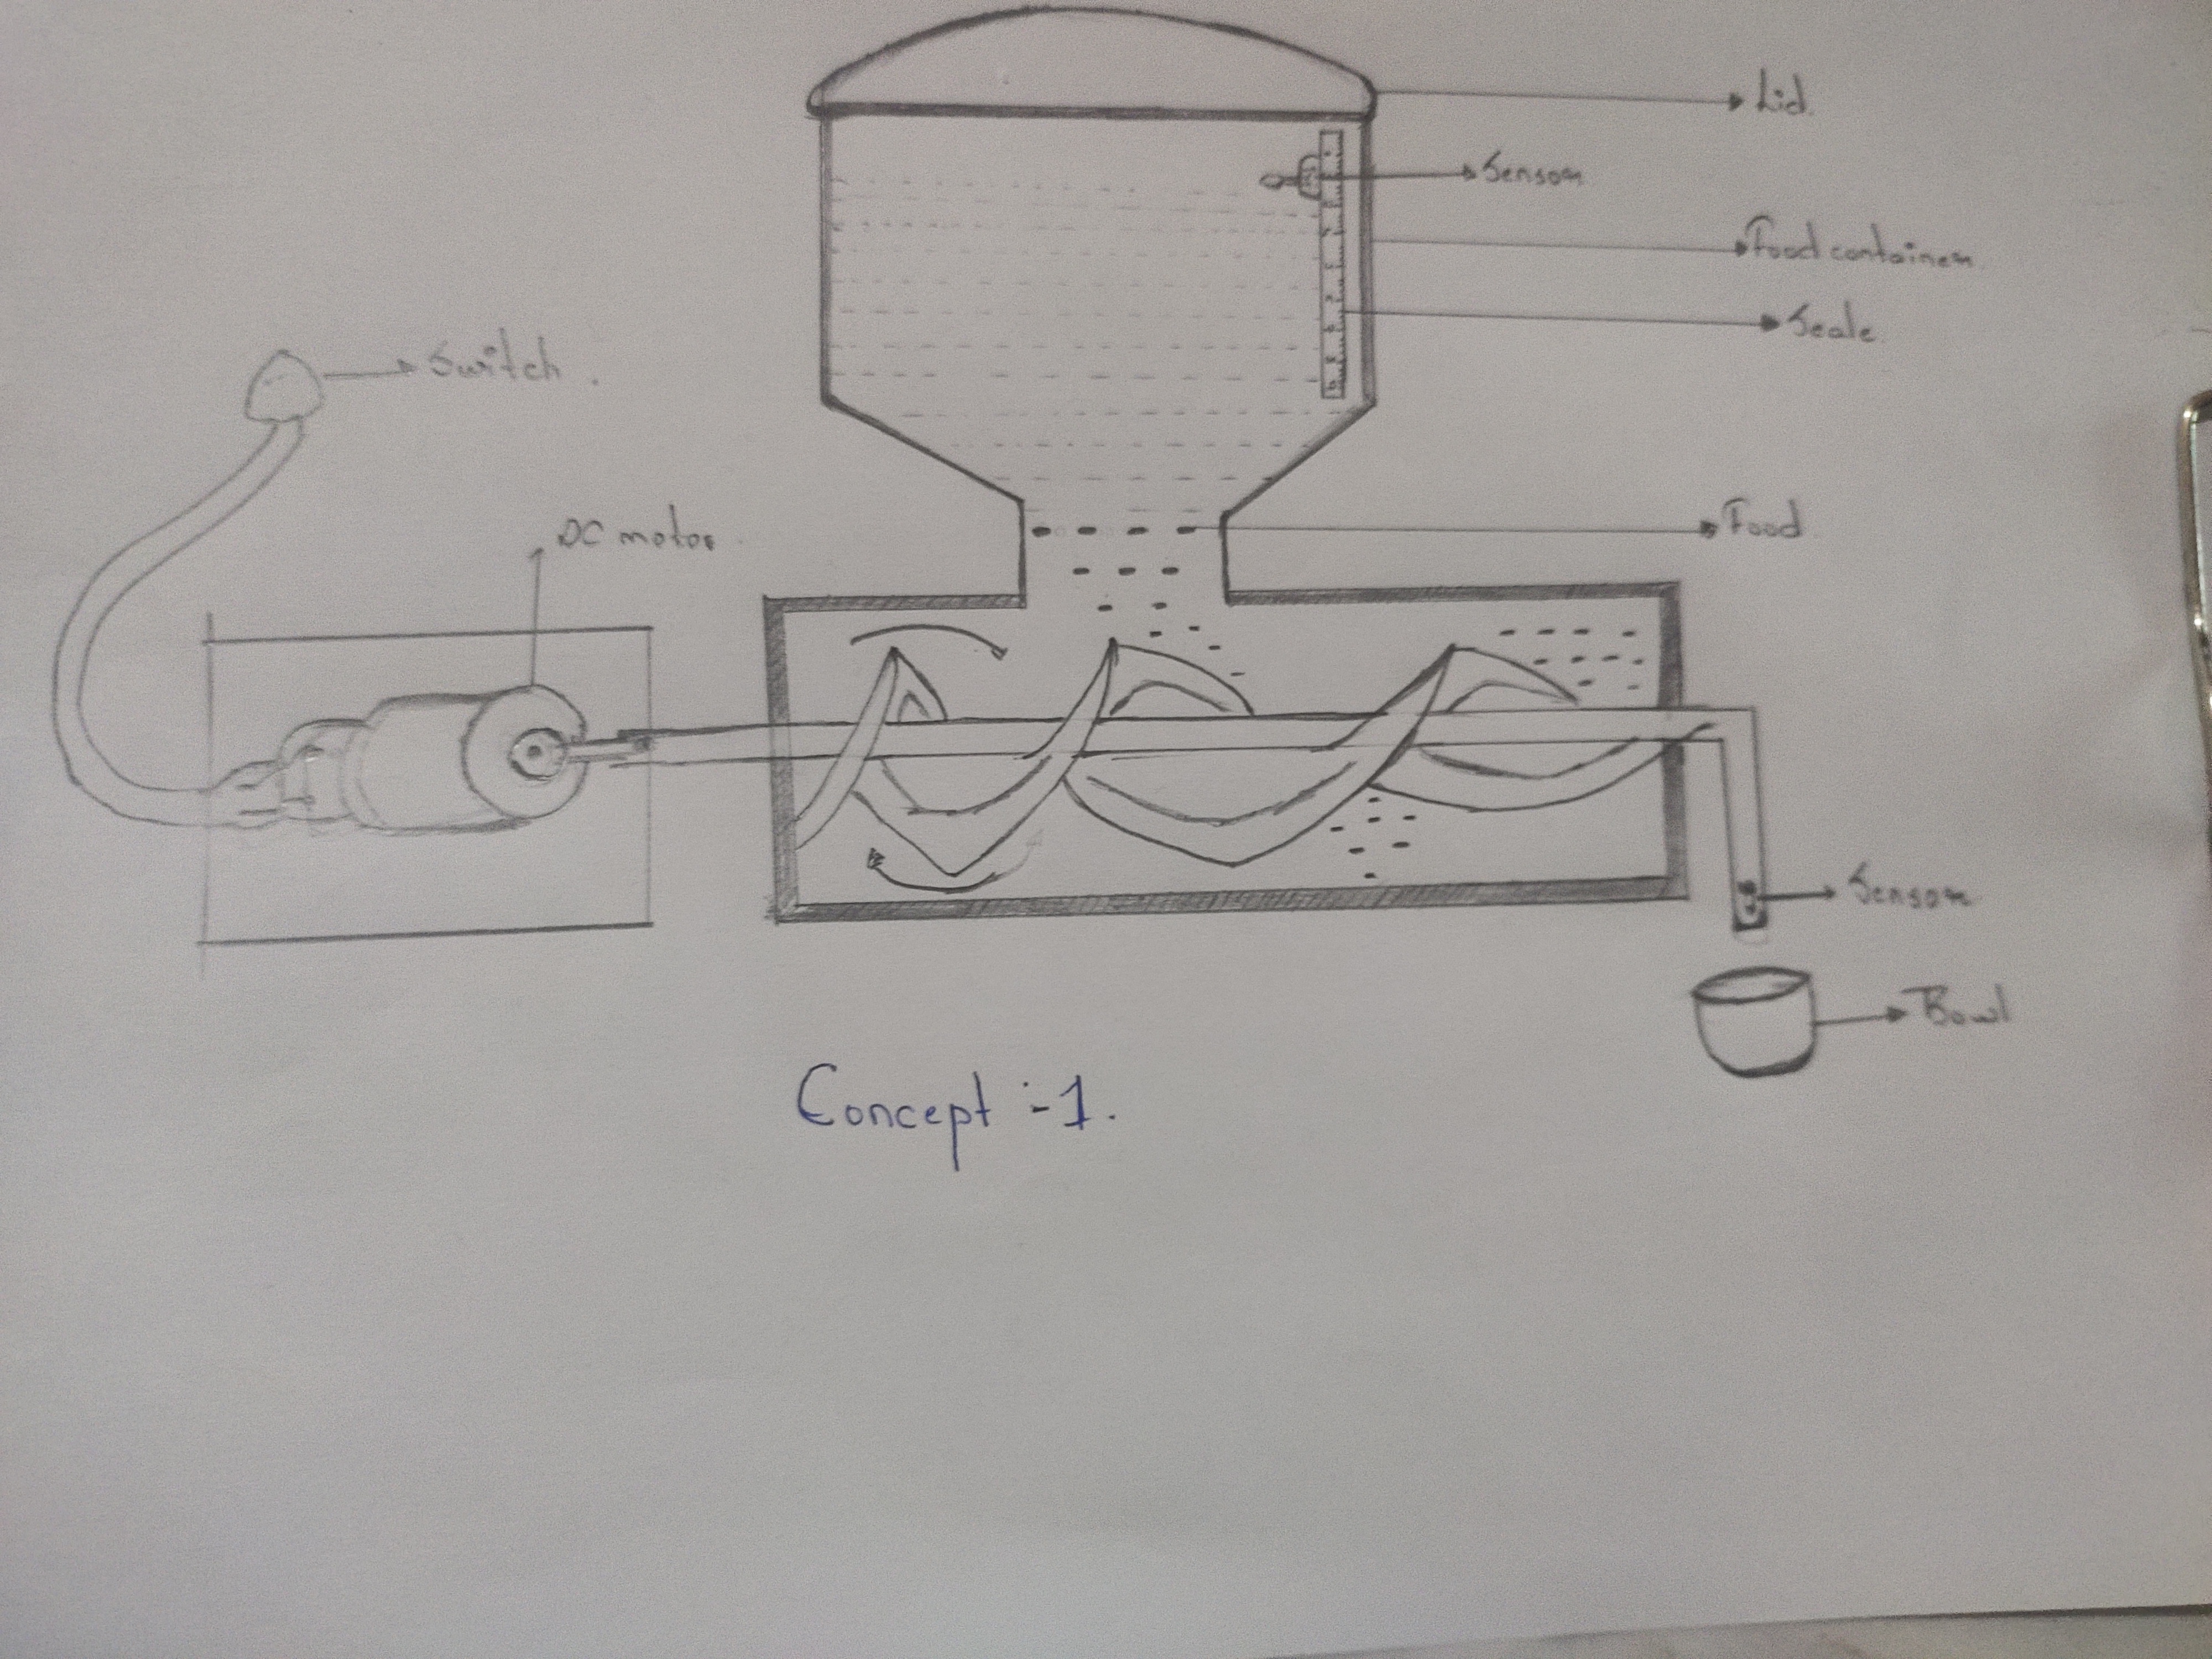 Lid.
Sensor
Food container.
Scale
Switch.
DC motor.
Food
Sensor
Bowl
Concept :-1.